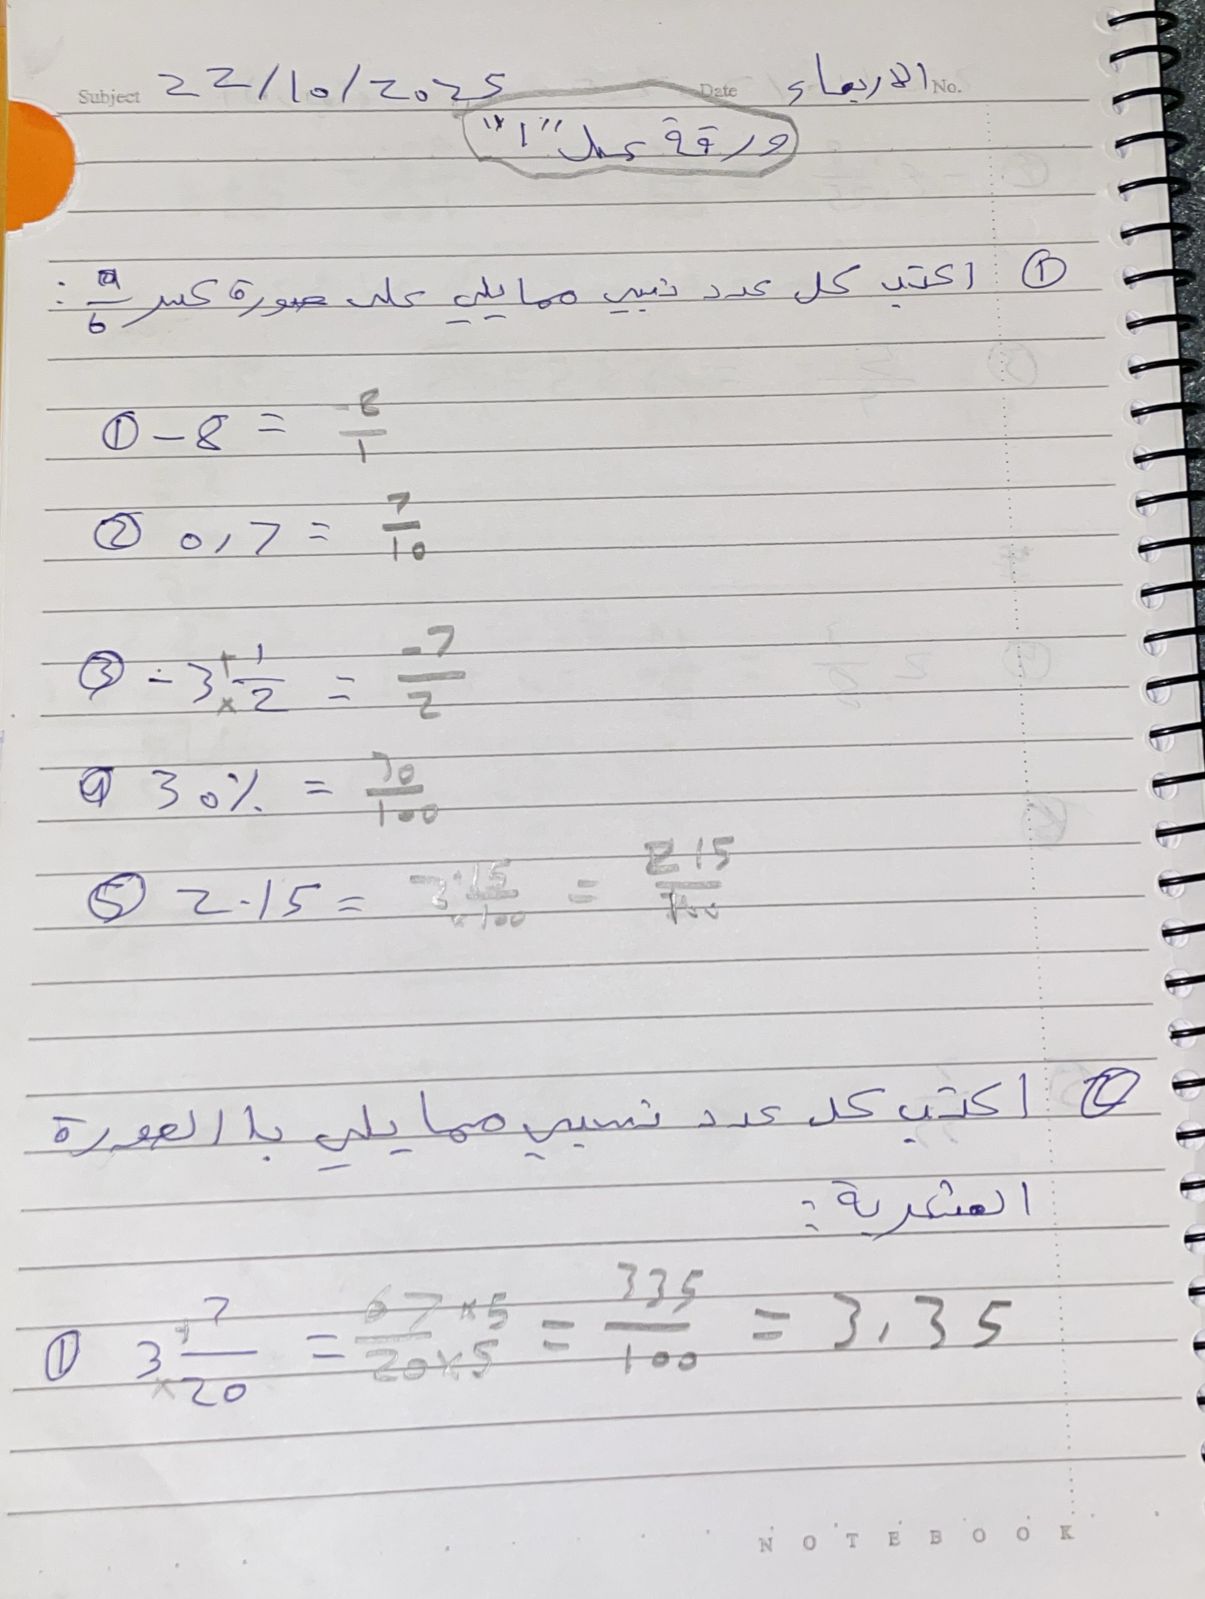 Subject 22/10/2025 Date الاربعاء No.
ورقة عمل "1"
① اكتب كل عدد نسبي مما يلي على صورة كسر a/b :
① -8 = -8/1
② 0,7 = 7/10
③ -3 1/2 = -7/2
④ 30% = 30/100
⑤ 2.15 = = 215/100
② اكتب كل عدد نسبي مما يلي باالصورة
العشرية :
① 3 7/20 = 67×5/20×5 = 335/100 = 3,35
NOTEBOOK